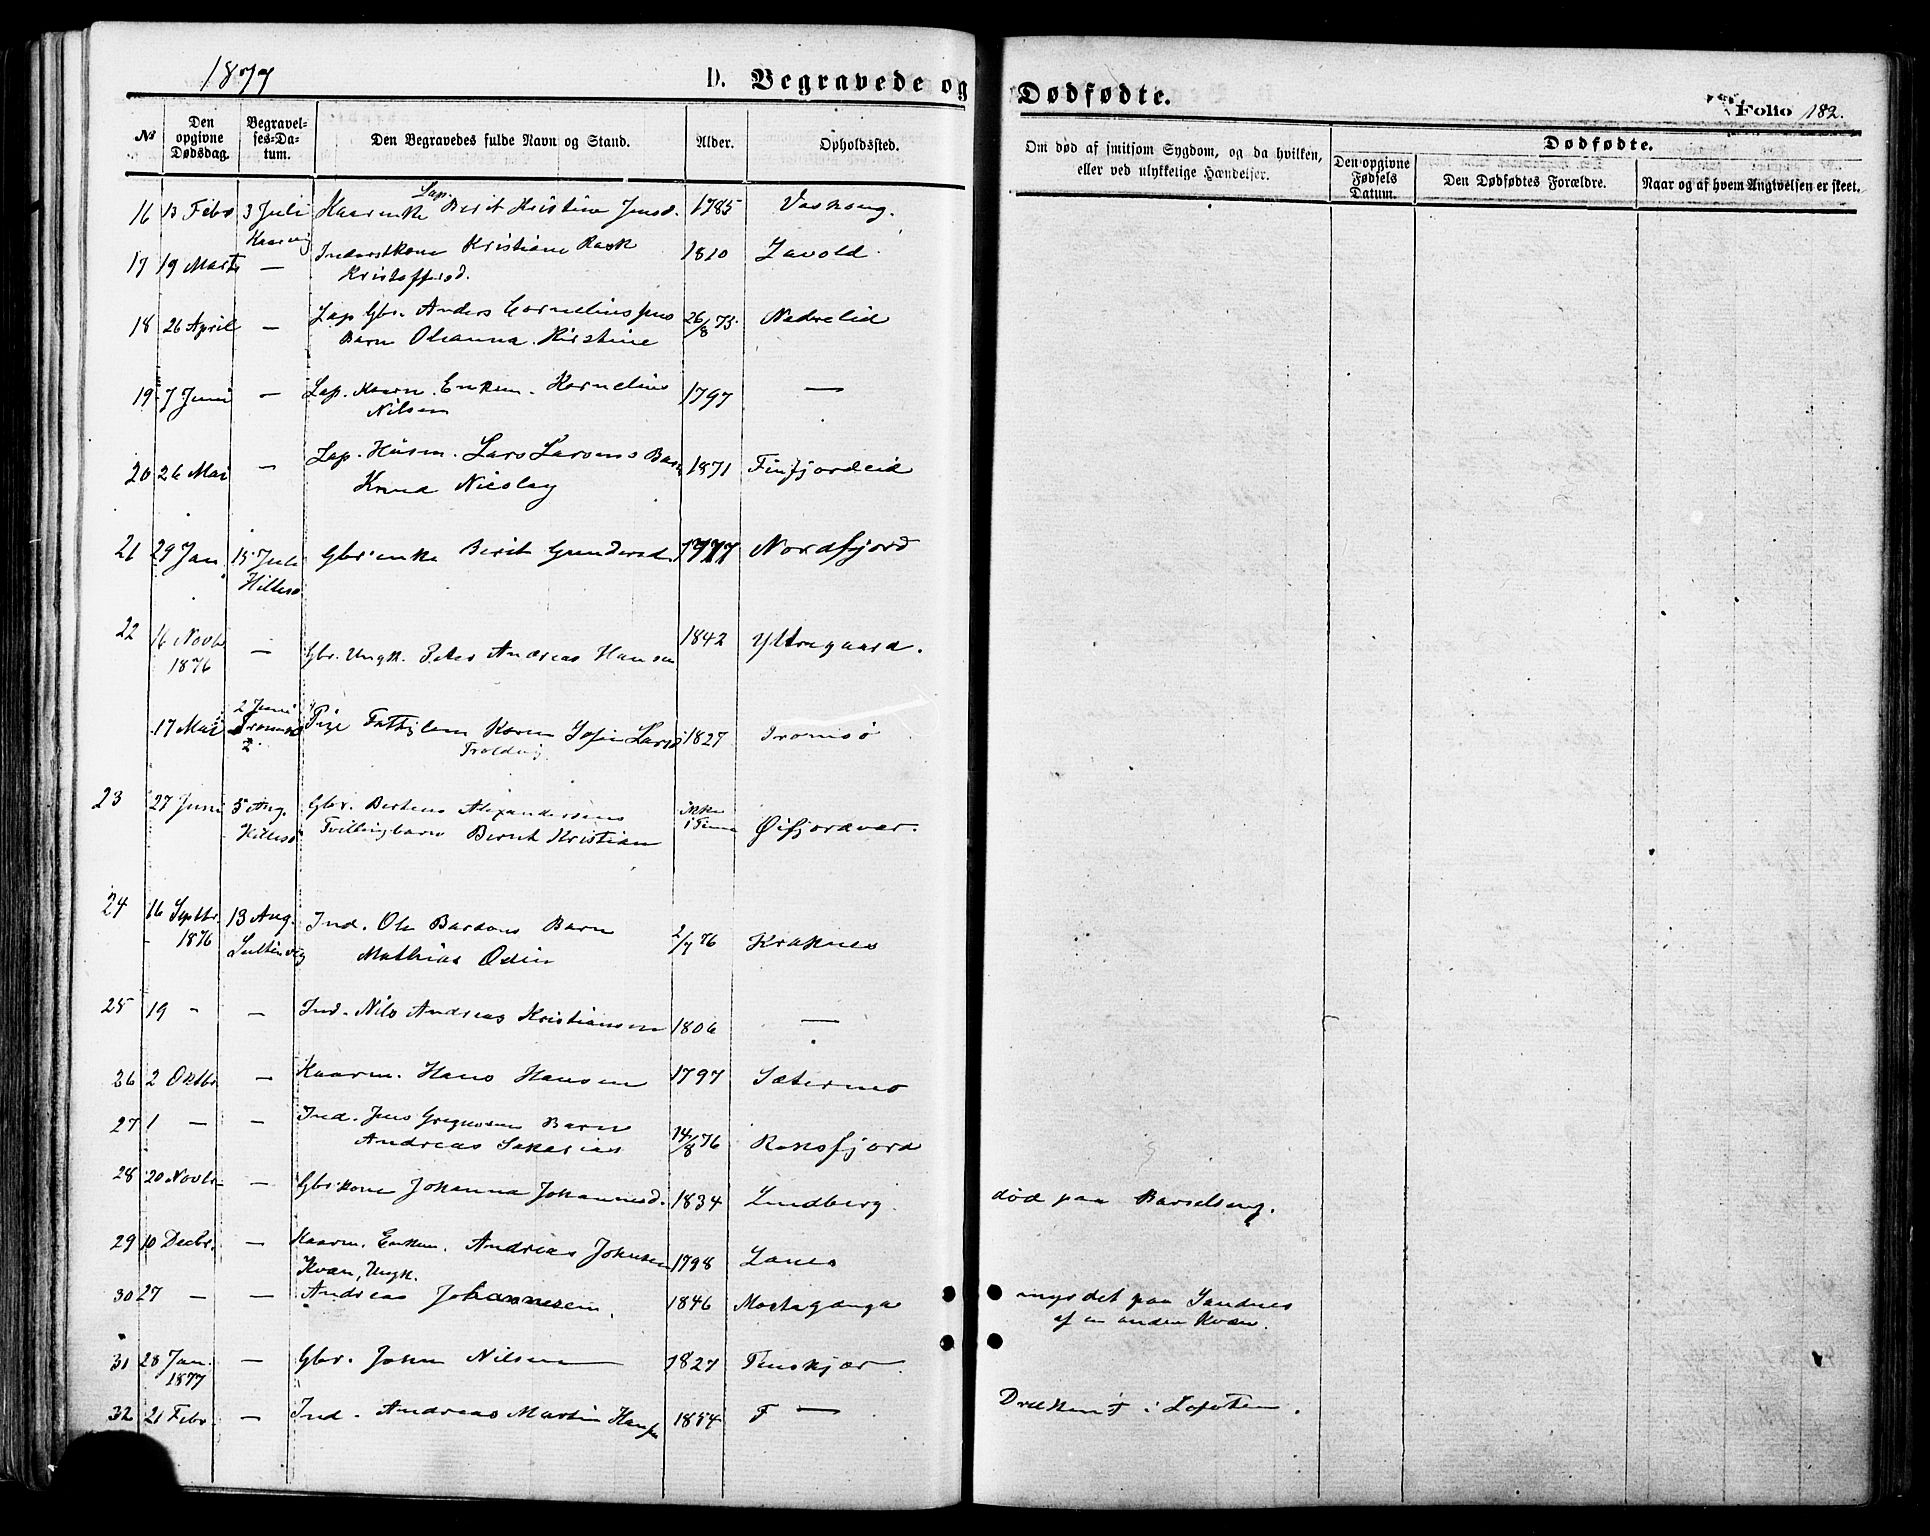 1877
D. Begravede og Dødfødte.
Folio 182.
No
Den opgivne Dødsdag.
Begravelses-Datum.
Den Begravedes fulde Navn og Stand.
Alder.
Opholdssted.
Om død af smitsom Sygdom, og da hvilken, eller ved ulykkelige Hændelser.
Dødfødte.
Den opgivne Fødsels Datum.
Den Dødfødtes Forældre.
Naar og af hvem Angivelsen er skeet.
Lap.
16 13 Febr 3 Juli Kaarenke Berit Kristine Jensd. 1785
Kaarvig
17 19 Marts — Inderstkone Kristiane Rask 1810
Kristoffersd.
18 26 April — Lap Gbr. Anders Corneliussens 26/8 75. Nedrelid
Barn Oleanna Kirstine
19 7 Juni — Lap. Kaarm. Enkem. Kornelius 1797 —
Nilsen
20 26 Mai — Lap. Husm. Lars Larsens Barn 1871 Finfjordeid
Knud Nicolay
21 29 Jan. 15 Juli Gbr.enke Berit Gundersd. 1777 Nordfjord
Hillesø
22 16 Novbr — Gbr. Ungk. Peter Andreas Hansen 1842 Yttregaard.
1876
2 Juni
17 Mai Tromsø Pige Fattiglem Karen Sofie Larsd 1827 Tromsø
2
Troldvig
23 27 Juni 5 Aug. Gbr. Bertens Alexandersens ikke Øifjordvær.
Hillesø Tvillingbarn Bernt Kristian 1 Time
24 16 Septbr. 13 Aug. Ind. Ole Bardons Barn 2/7 76 Kraknes
1876 Mathias Odin
25 19 - — Ind. Nils Andreas Kristiansen 1806 —
26 2 Oktbr — Kaarm. Hans Hansen 1797 Sætermo
27 1 — — Ind. Jens Gregusen Barn 14/8 76
Andreas Sakarias
28 20 Novbr — Gbr.kone Johanna Johannesd. 1834 Lundberg. død paa Barselseng.
29 10 Decbr. — Kaarm. Enkem. Andreas Johnsen 1798 Lanes
Kvæn, Ungk.
30 27 — — Andreas Johannesen. 1846 myrdet paa Sandnes
af en anden Kvæn.
31 28 Jan. — Gbr. John Nilsen 1827 Finskjær.
1877
32 21 Febr — Ind. Andreas Martin Hansen 1854 F — Druknet i Lofoten.